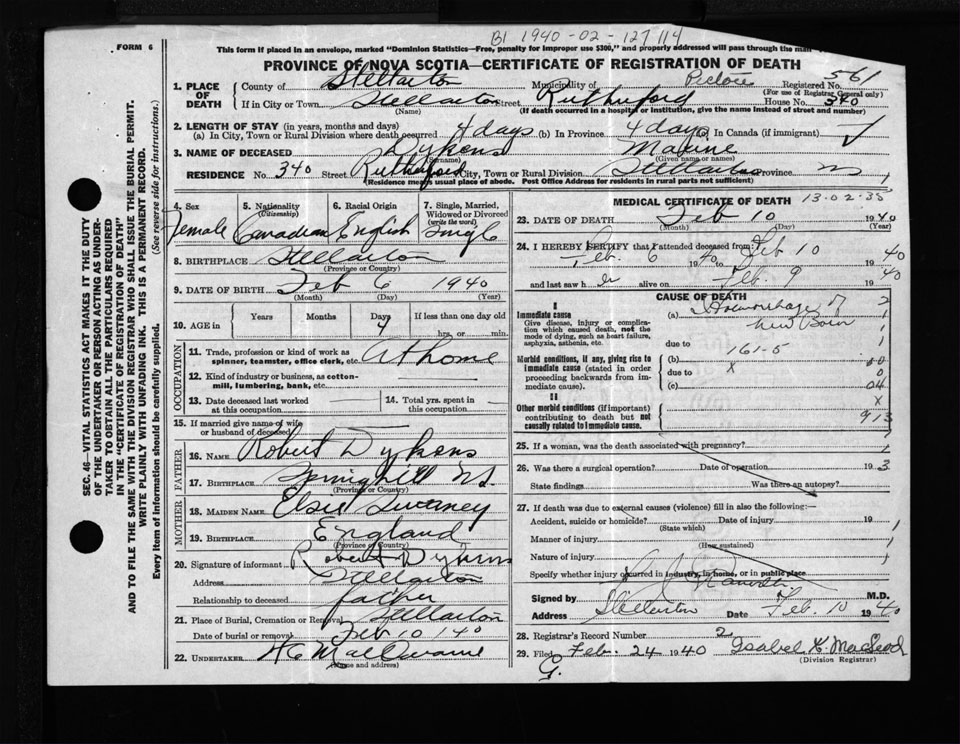 BI 1940-02-127114
FORM 6
This form if placed in an envelope, marked "Dominion Statistics—Free, penalty for improper use $300," and properly addressed will pass through the mail
PROVINCE OF NOVA SCOTIA—CERTIFICATE OF REGISTRATION OF DEATH
561
1. PLACE OF DEATH
County of Stellarton Municipality of Pictou Registered No.
(For use of Registrar General only)
If in City or Town Stellarton Street Rutherford House No. 340
(Name) (If death occurred in a hospital or institution, give the name instead of street and number)
2. LENGTH OF STAY (in years, months and days)
(a) In City, Town or Rural Division where death occurred 4 days (b) In Province 4 days (c) In Canada (if immigrant)
3. NAME OF DECEASED Dykens Maxine
(Surname) (Given name or names)
RESIDENCE No. 340 Street Rutherford City, Town or Rural Division Stellarton Province
(Residence means usual place of abode. Post Office Address for residents in rural parts not sufficient)
4. Sex 5. Nationality (Citizenship) 6. Racial Origin 7. Single, Married, Widowed or Divorced (write the word)
Female Canadian English Single
8. BIRTHPLACE Stellarton
(Province or Country)
9. DATE OF BIRTH Feb 6 1940
(Month) (Day) (Year)
10. AGE in Years Months Days If less than one day old
4 hrs. or min.
OCCUPATION
11. Trade, profession or kind of work as spinner, teamster, office clerk, etc. At home
12. Kind of industry or business, as cotton-mill, lumbering, bank, etc.
13. Date deceased last worked at this occupation
14. Total yrs. spent in this occupation
15. If married give name of wife or husband of deceased
FATHER
16. NAME Robert Dykens
17. BIRTHPLACE Springhill N.S.
(Province or Country)
MOTHER
18. MAIDEN NAME Elsie Swaney
19. BIRTHPLACE England
(Province or Country)
20. Signature of informant Robert Dykens
Address Stellarton
Relationship to deceased father
21. Place of Burial, Cremation or Removal Stellarton
Date of burial or removal Feb 10 1940
22. UNDERTAKER
(Name and address)
MEDICAL CERTIFICATE OF DEATH 13-02-35
23. DATE OF DEATH Feb 10 1940
(Month) (Day) (Year)
24. I HEREBY CERTIFY that I attended deceased from:
Feb. 6 1940 Feb 10 1940
and last saw her alive on Feb. 9 1940
CAUSE OF DEATH
I
Immediate cause (a) Hemorrhage of
New Born
Give disease, injury or complication which caused death, not the mode of dying, such as heart failure, asphyxia, asthenia, etc.
due to
Morbid conditions, if any, giving rise to immediate cause (stated in order proceeding backwards from immediate cause).
(b) 161-5
due to x
(c)
II
Other morbid conditions (if important) contributing to death but not causally related to immediate cause.
25. If a woman, was the death associated with pregnancy?
26. Was there a surgical operation? Date of operation 19
State findings Was there an autopsy?
27. If death was due to external causes (violence) fill in also the following:—
Accident, suicide or homicide? Date of injury 19
(State which)
Manner of injury
(How sustained)
Nature of injury
Specify whether injury occurred in industry, in home, or in public place
Signed by M.D.
Address Stellarton Date Feb. 10 1940
28. Registrar's Record Number 2
29. Filed Feb. 24 1940 Isabel K. MacLeod
(Division Registrar)
SEC. 46—VITAL STATISTICS ACT MAKES IT THE DUTY
OF THE UNDERTAKER OR PERSON ACTING AS UNDERTAKER TO OBTAIN ALL THE PARTICULARS REQUIRED
IN THE "CERTIFICATE OF REGISTRATION OF DEATH"
AND TO FILE THE SAME WITH THE DIVISION REGISTRAR WHO SHALL ISSUE THE BURIAL PERMIT.
WRITE PLAINLY WITH UNFADING INK. THIS IS A PERMANENT RECORD.
Every item of information should be carefully supplied. (See reverse side for instructions.)